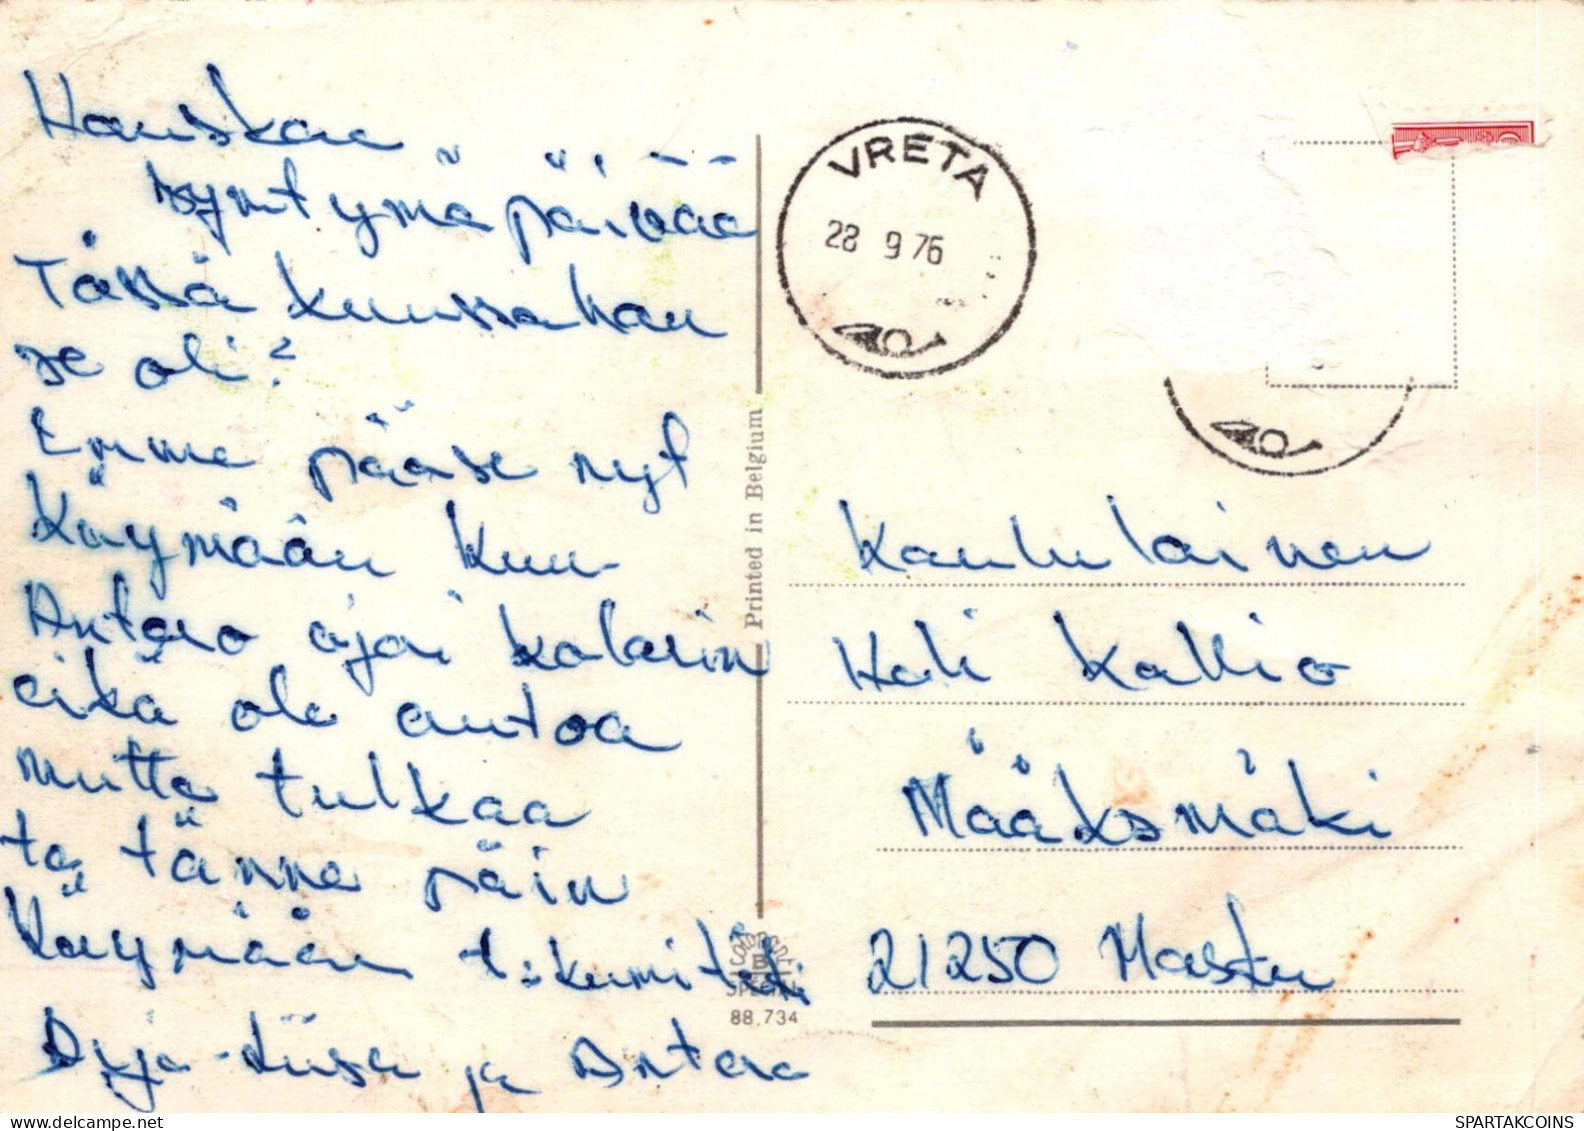 Hauskaa
syntymäpäivää
Tässä kuussahan
se oli?
Emme pääse nyt
käymään kun
Antero ajai
eikä ole autoa
mutta tulkaa
te tänne päin
käymään t. kummitäti
Arja-Liisa ja Antero
VRETA
28 9 76
Printed in Belgium
Colorprint
B
SPECIAL
88.734
Kaululainen
Heli Kallio
Määksmäki
21250 Masku
SPARTAKCOINS